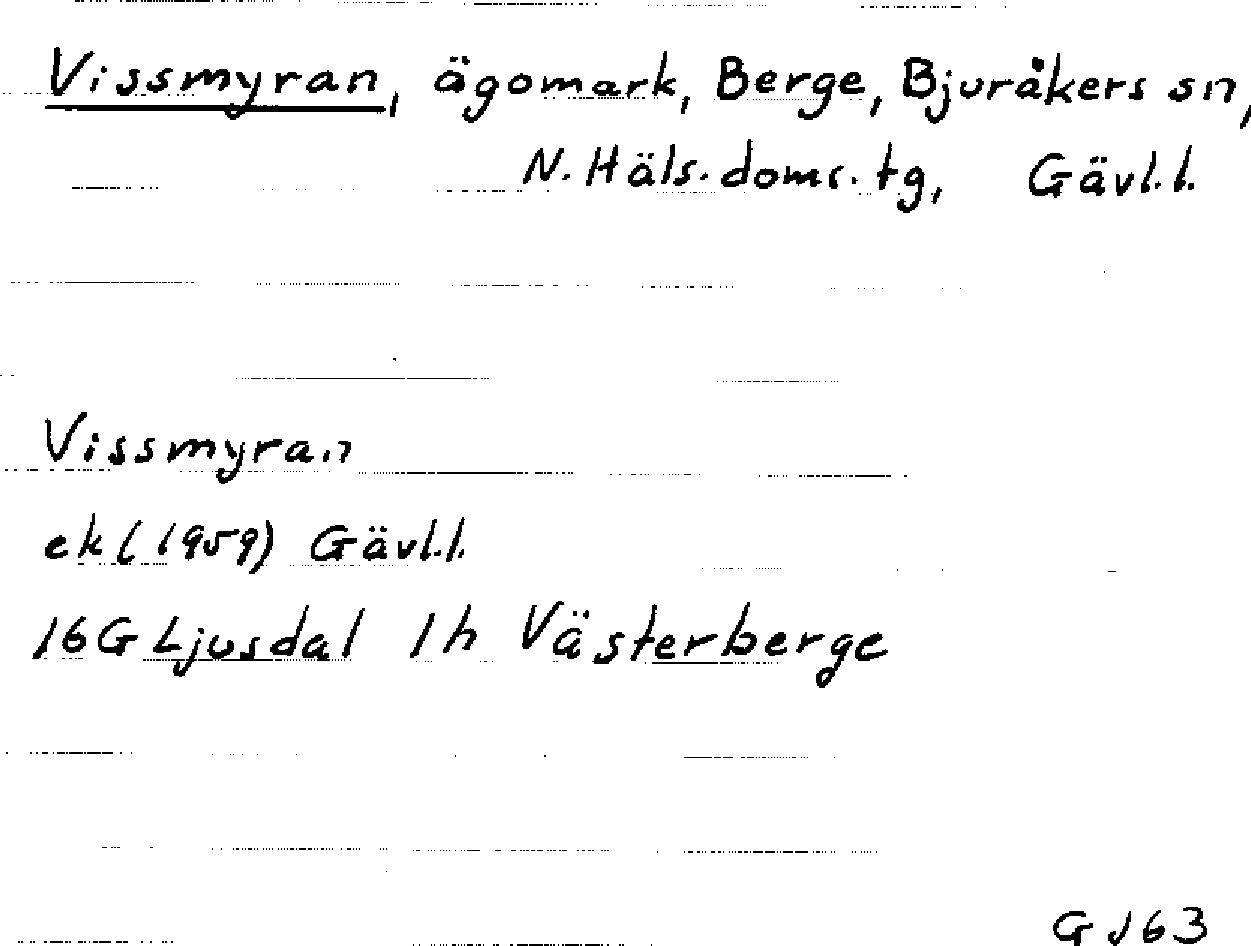 Vissmyran, ägomark, Berge, Bjuråkers sn,
N. Häls. doms. tg, Gävl.l.
Vissmyran
ek (1959) Gävl.l.
16G Ljusdal 1h Västerberge
GJ63